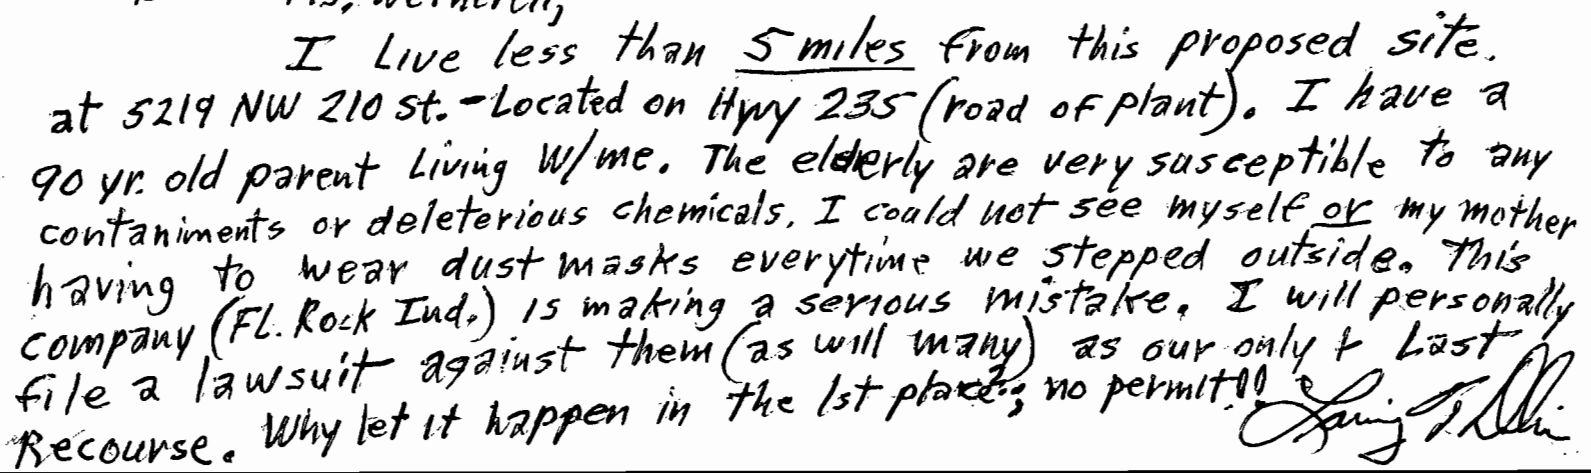 I Live less than 5 miles from this proposed site.
at 5219 NW 210 St. - Located on Hwy 235 (road of plant). I have a
90 yr. old parent Living W/me. The elderly are very susceptible to any
contaniments or deleterious chemicals. I could not see myself or my mother
having to wear dust masks everytime we stepped outside. This
company (FL. Rock Ind.) is making a serious mistake. I will personally
file a lawsuit against them (as will many) as our only & Last
Recourse. Why let it happen in the 1st place?; no permit!!